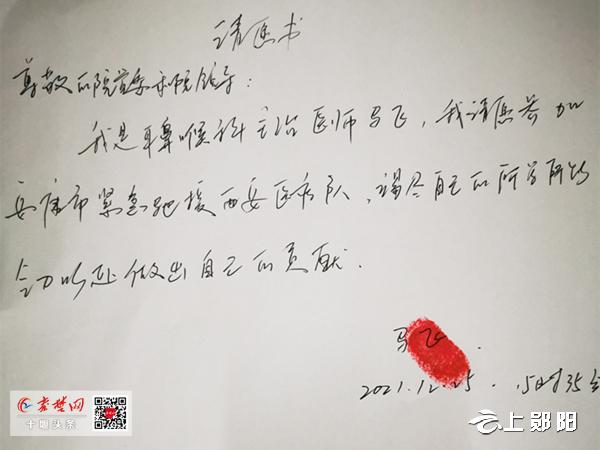 请愿书
尊敬的院党委和院领导:
我是耳鼻喉科主治医师马飞,我请愿参加
安康市紧急驰援西安医疗队,竭尽自己的所学所能
全力以赴做出自己的贡献.
马飞.
2021.12.25. 15时35分
秦楚网
十堰头条
云上郧阳